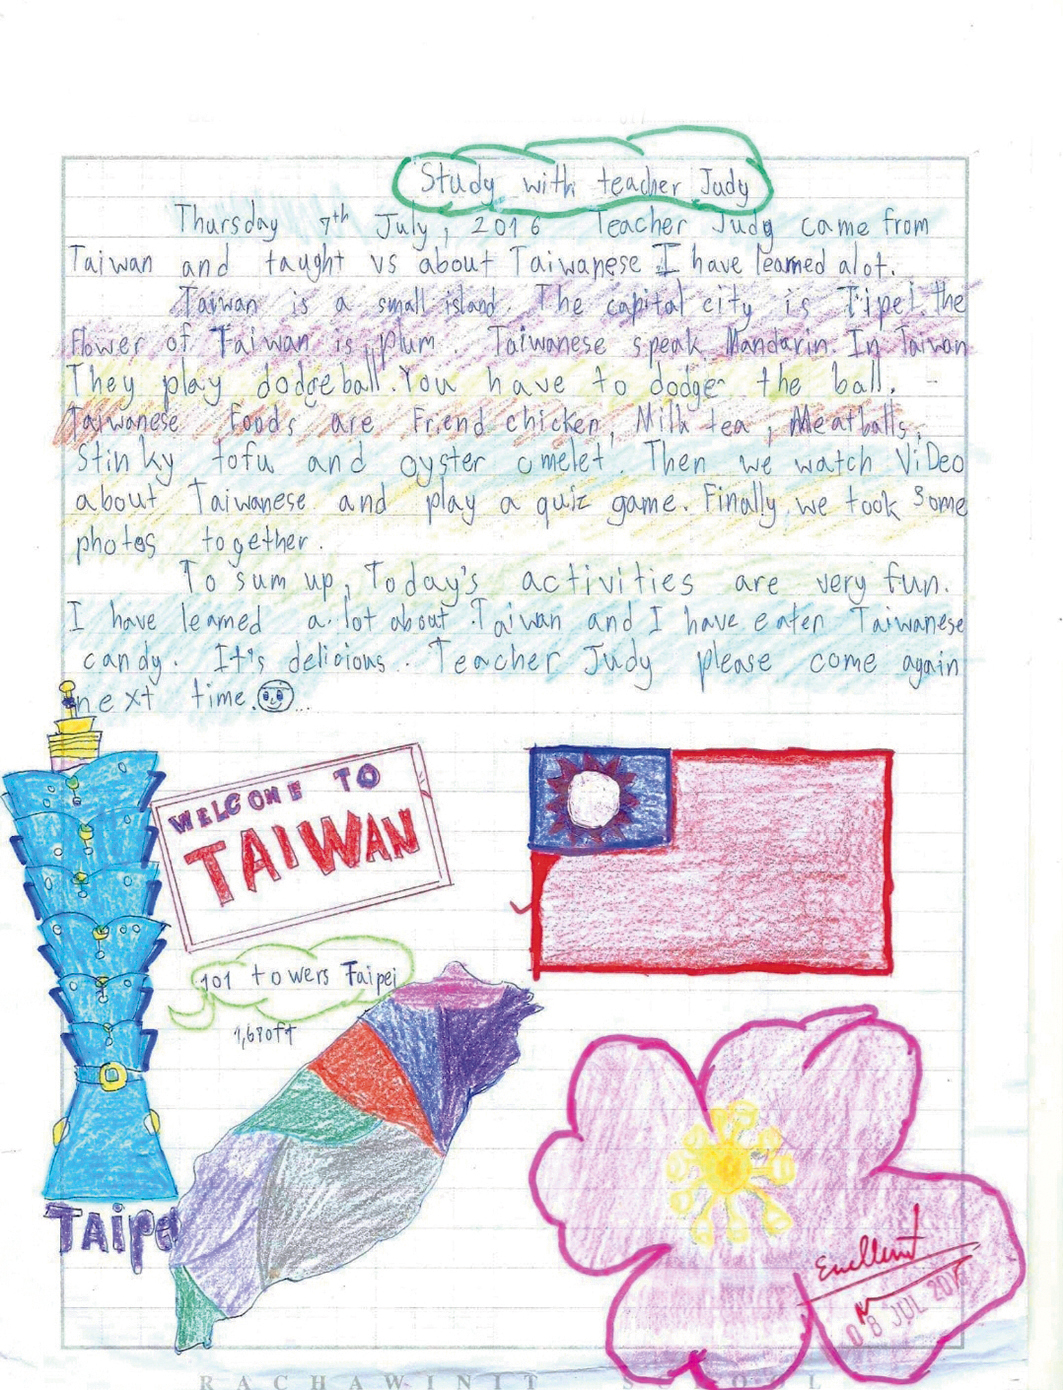 Study with teacher Judy
Thursday 7th July, 2016 Teacher Judy came from
Taiwan and taught vs about Taiwanese I have learned alot.
Taiwan is a small island. The capital city is Tipei. the
flower of Taiwan is plum. Taiwanese speak Mandarin. In Taiwan
They play dodgeball. You have to dodge the ball.
Taiwanese foods are Friend chicken, Milk tea, Meatballs,
Stinky tofu and oyster omelet. Then we watch ViDeo
about Taiwanese and play a quiz game. Finally, we took Some
photos together.
To sum up, Today's activities are very fun.
I have learned a lot about Taiwan and I have eaten Taiwanese
candy. It's delicious.. Teacher Judy please come again
next time. ...
WELCOME TO
TAIWAN
101 towers Taipei
1,670ft
TAIPE
Excellent
08 JUL 201
RACHAWINIT SCHOOL